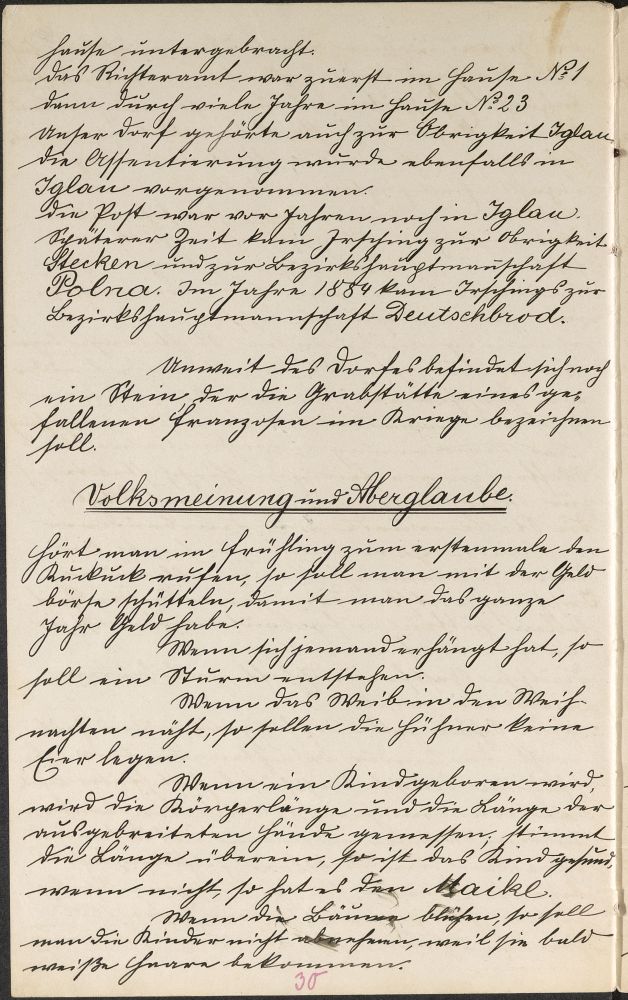 hause untergebracht.
Das Richteramt war zuerst im Hause No 1
dann durch viele Jahre im Hause No 23
Unser Dorf gehörte auch zur Obrigkeit Iglau
die Assentierung wurde ebenfalls in
Iglau vorgenommen.
Die Post war vor Jahren noch in Iglau.
Späterer Zeit kam Irsching zur Obrigkeit
Stecken und zur Bezirkshauptmannschaft
Polna. Im Jahre 1884 kam Irschings zur
Bezirkshauptmannschaft Deutschbrod.
Unweit des Dorfes befindet sich noch
ein Stein, der die Grabstätte eines ge-
fallenen Franzosen im Kriege bezeichnen
soll.
Volksmeinung und Aberglaube.
Hört man im Frühling zum erstenmale den
Kuckuck rufen, so soll man mit der Geld
börse schütteln, damit man das ganze
Jahr Geld habe.
Wenn sich jemand erhängt hat, so
soll ein Sturm entstehen.
Wenn das Weib in den Weih-
nachten näht, so sollen die Hühner keine
Eier legen.
Wenn ein Kind geboren wird,
wird die Körperlänge und die Länge der
ausgebreiteten Hände gemessen, stimmt
die Länge überein, so ist das Kind gesund,
wenn nicht, so hat es den Maikl.
Wenn die Bäume blühen, so soll
man die Kinder nicht abnehmen, weil sie bald
weiße Haare bekommen.
30